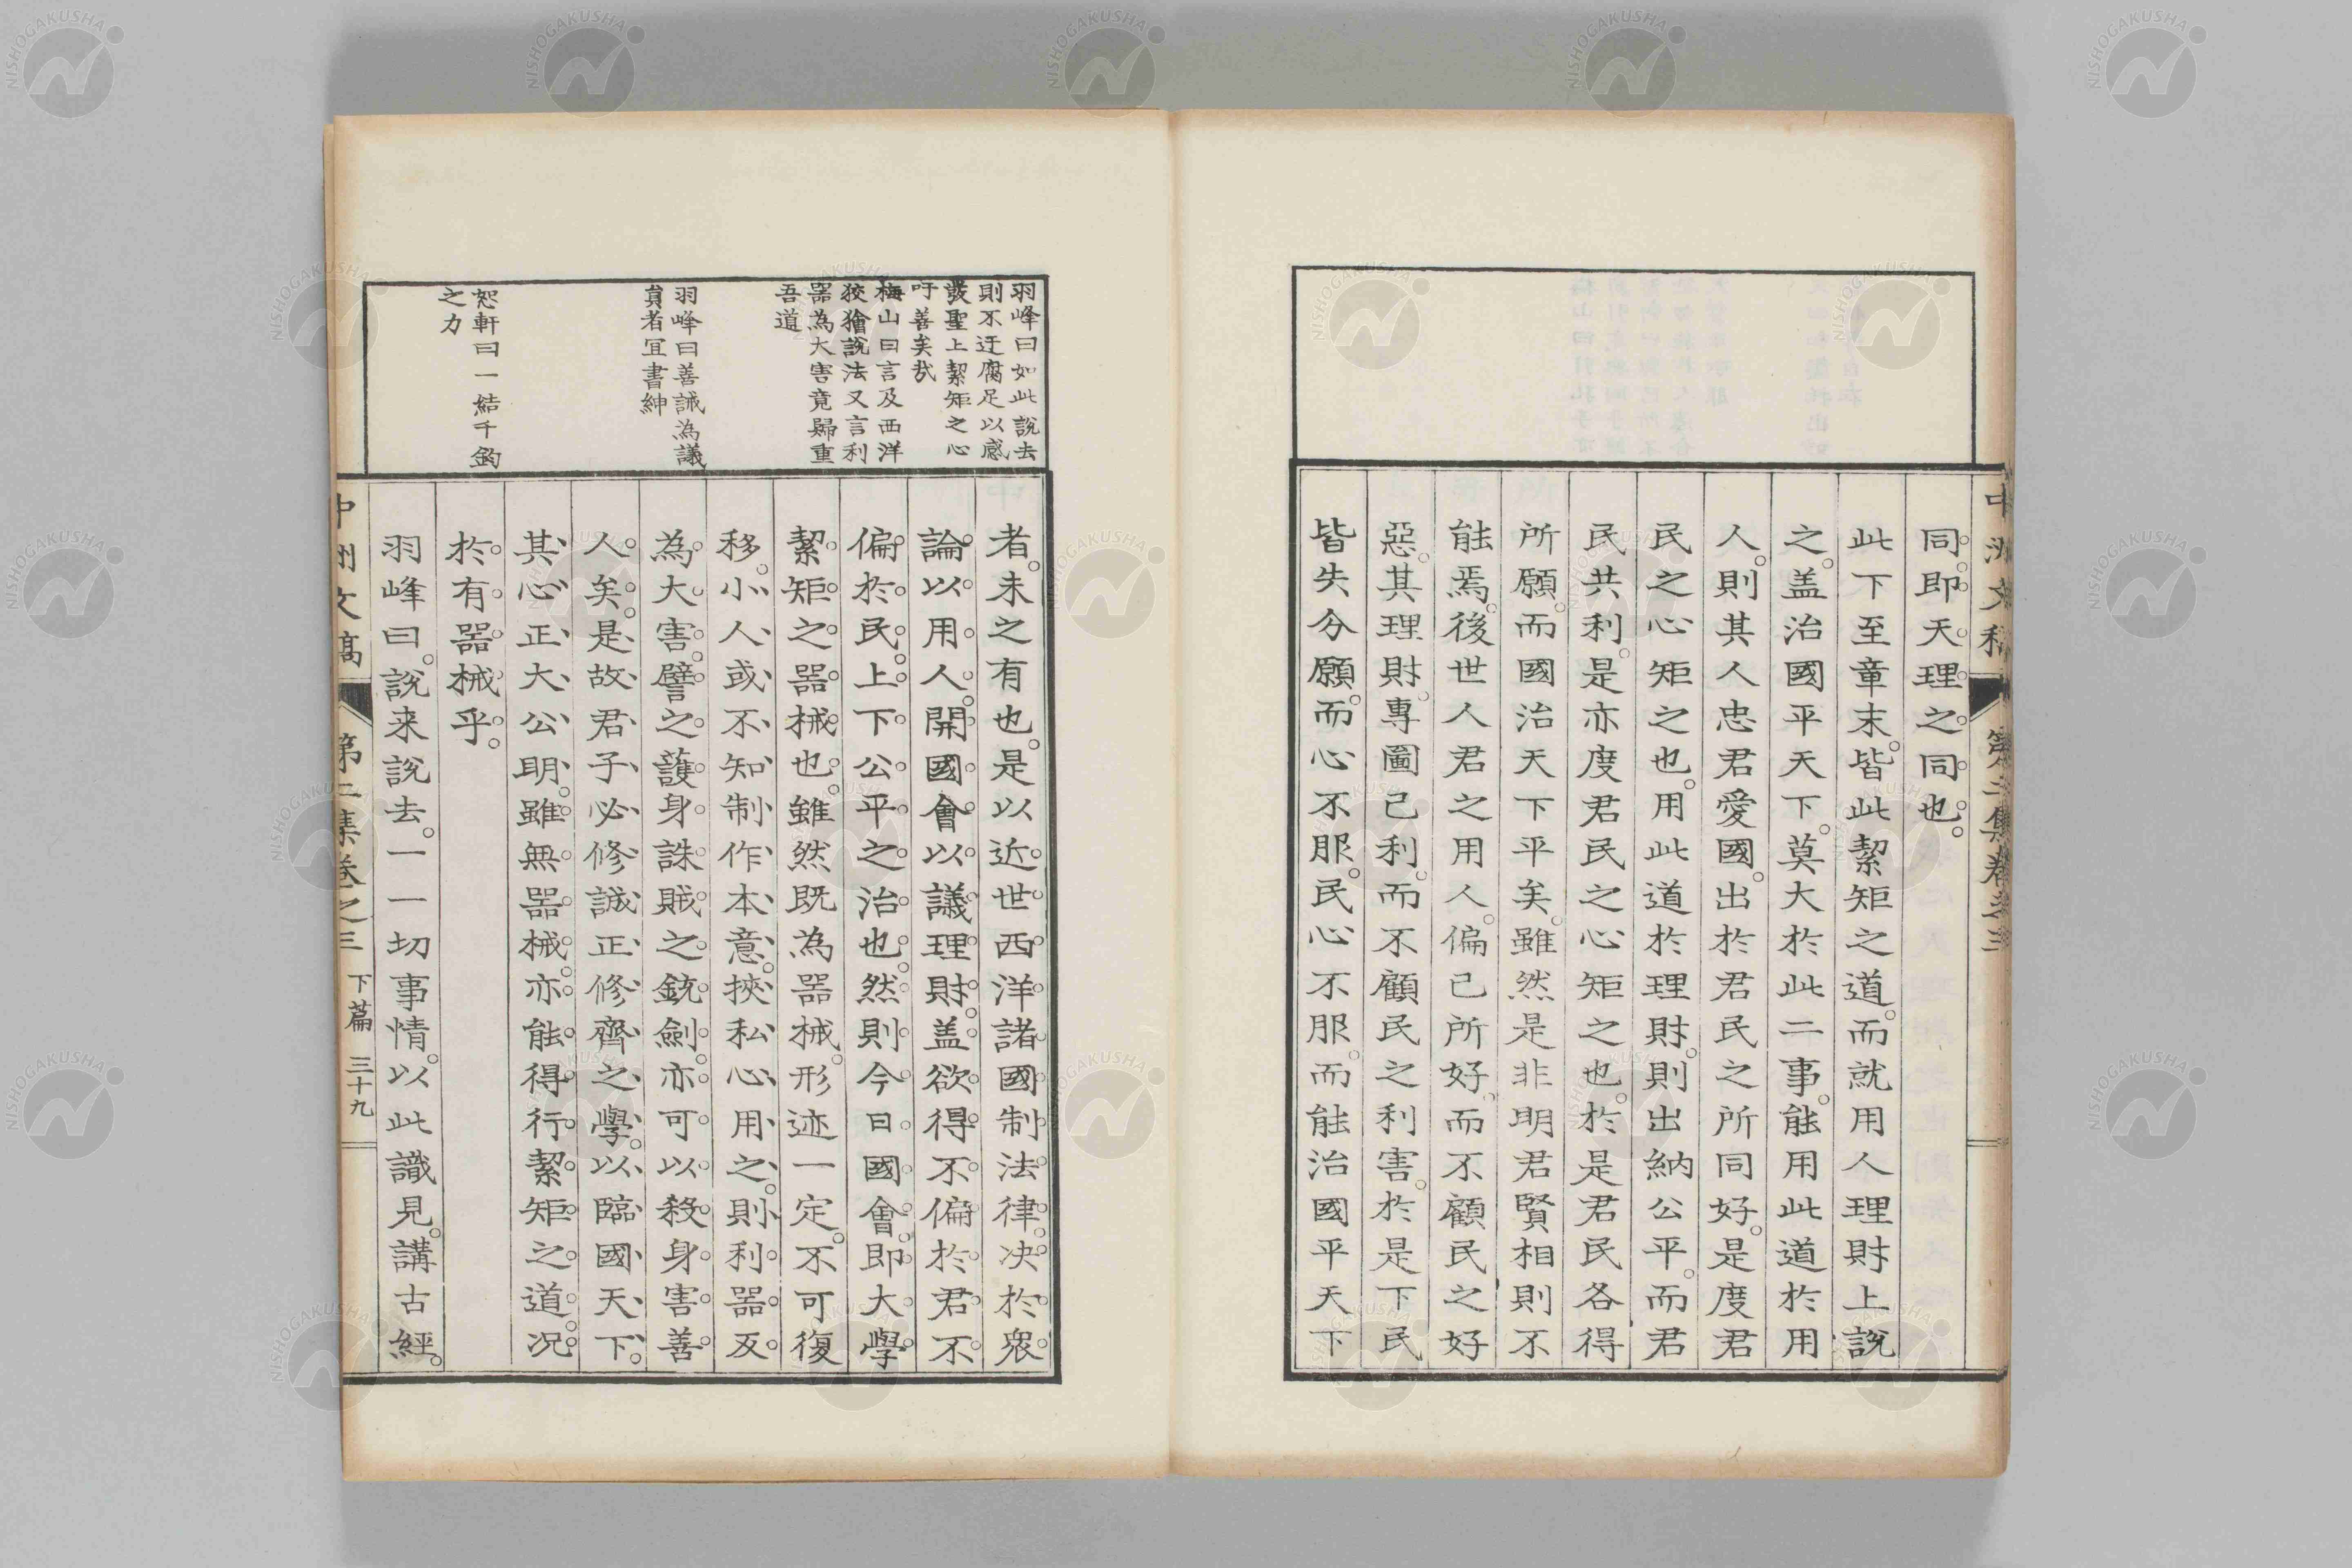 同。即天理之同也。
此下至章末。皆此絜矩之道。而就用人理財上說
之。盖治國平天下。莫大於此二事。能用此道於用
人。則其人忠君愛國。出於君民之所同好。是度君
民之心矩之也。用此道於理財。則出納公平。而君
民共利。是亦度君民之心矩之也。於是君民各得
所願。而國治天下平矣。雖然是非明君賢相則不
能焉。後世人君之用人。偏己所好。而不顧民之好
惡。其理財。專圖己利。而不顧民之利害。於是下民
皆失分願。而心不服。民心不服。而能治國平天下
羽峰曰如此說去
則不迂腐足以感
發聖上絜矩之心
吁善矣哉
梅山曰言及西洋
狡獪說法又言利
器為大害竟歸重
吾道
羽峰曰善誡為議
員者宜書紳
恕軒曰一結千鈞
之力
者。未之有也。是以近世西洋諸國制法律。决於衆
論以用人。開國會以議理財。盖欲得不偏於君不
偏於民。上下公平之治也。然則今日國會。即大學
絜矩之器械也。雖然既為器械。形迹一定。不可復
移。小人或不知制作本意。挾私心用之。則利器反
為大害。譬之護身誅賊之銃劍。亦可以殺身害善
人矣。是故君子必修誠正修齊之學。以臨國天下。
其心正大公明。雖無器械。亦能得行絜矩之道。况
於有器械乎。
羽峰曰。說来說去。一一切事情。以此識見。講古經。
中洲文稿
第二集卷之三
下篇
三十九
NISHOGAKUSHA